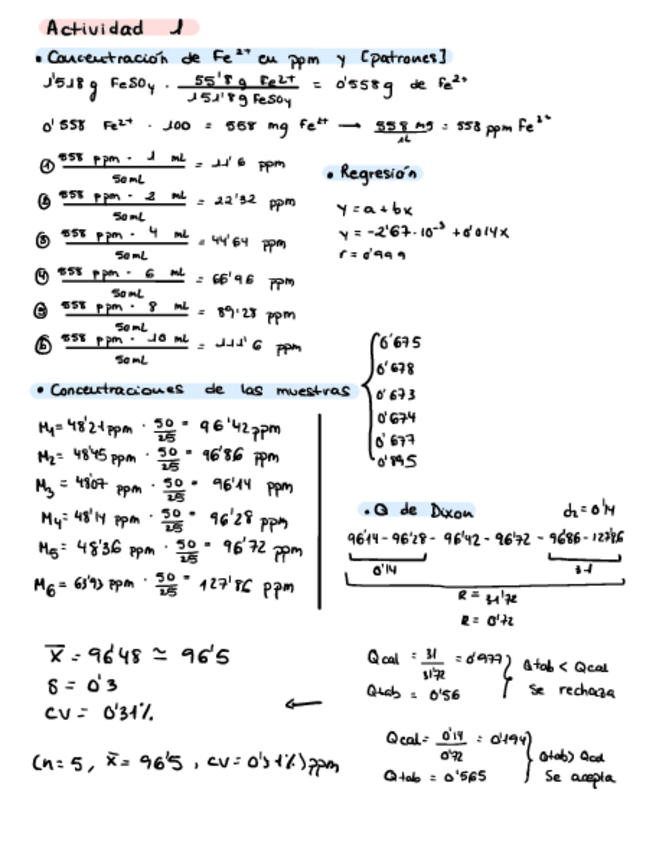 Actividad 1
• Concentración de Fe²⁺ en ppm y [patrones]
1'518 g FeSO₄ · 55'8 g Fe2+ / 151'8 g FeSO₄ = 0'558 g de Fe²⁺
0'558 Fe²⁺ · 100 = 558 mg Fe²⁺ → 558 mg / 1L = 558 ppm Fe²⁺
① 558 ppm · 1 mL / 50 mL = 11'6 ppm
② 558 ppm · 2 mL / 50mL = 22'32 ppm
③ 558 ppm · 4 mL / 50mL = 44'64 ppm
④ 558 ppm · 6 mL / 50mL = 66'96 ppm
⑤ 558 ppm · 8 mL / 50mL = 89'28 ppm
⑥ 558 ppm · 10 mL / 50mL = 111'6 ppm
• Regresión
y = a + bx
y = -2'67·10⁻³ + 0'014x
r = 0'999
• Concentraciones de las muestras
0'675
0'678
0'673
0'674
0'677
0'895
M₁= 48'21 ppm · 50/25 = 96'42 ppm
M₂= 48'45 ppm · 50/25 = 96'86 ppm
M₃= 48'07 ppm · 50/25 = 96'14 ppm
M₄= 48'14 ppm · 50/25 = 96'28 ppm
M₅= 48'36 ppm · 50/25 = 96'72 ppm
M₆= 63'93 ppm · 50/25 = 127'86 ppm
• Q de Dixon
d₂=0'14
96'14 - 96'28 - 96'42 - 96'72 - 96'86 - 127'86
0'14
31
R = 31'72
R = 0'72
x̄ = 96'48 ≃ 96'5
s = 0'3
CV = 0'31%
(n=5, x̄= 96'5, CV= 0'31%) ppm
Qcal = 31/31'72 = 0'977
Qtab = 0'56
Qtab < Qcal
Se rechaza
Qcal= 0'14/0'72 = 0'194
Qtab = 0'565
Qtab> Qcal
Se acepta